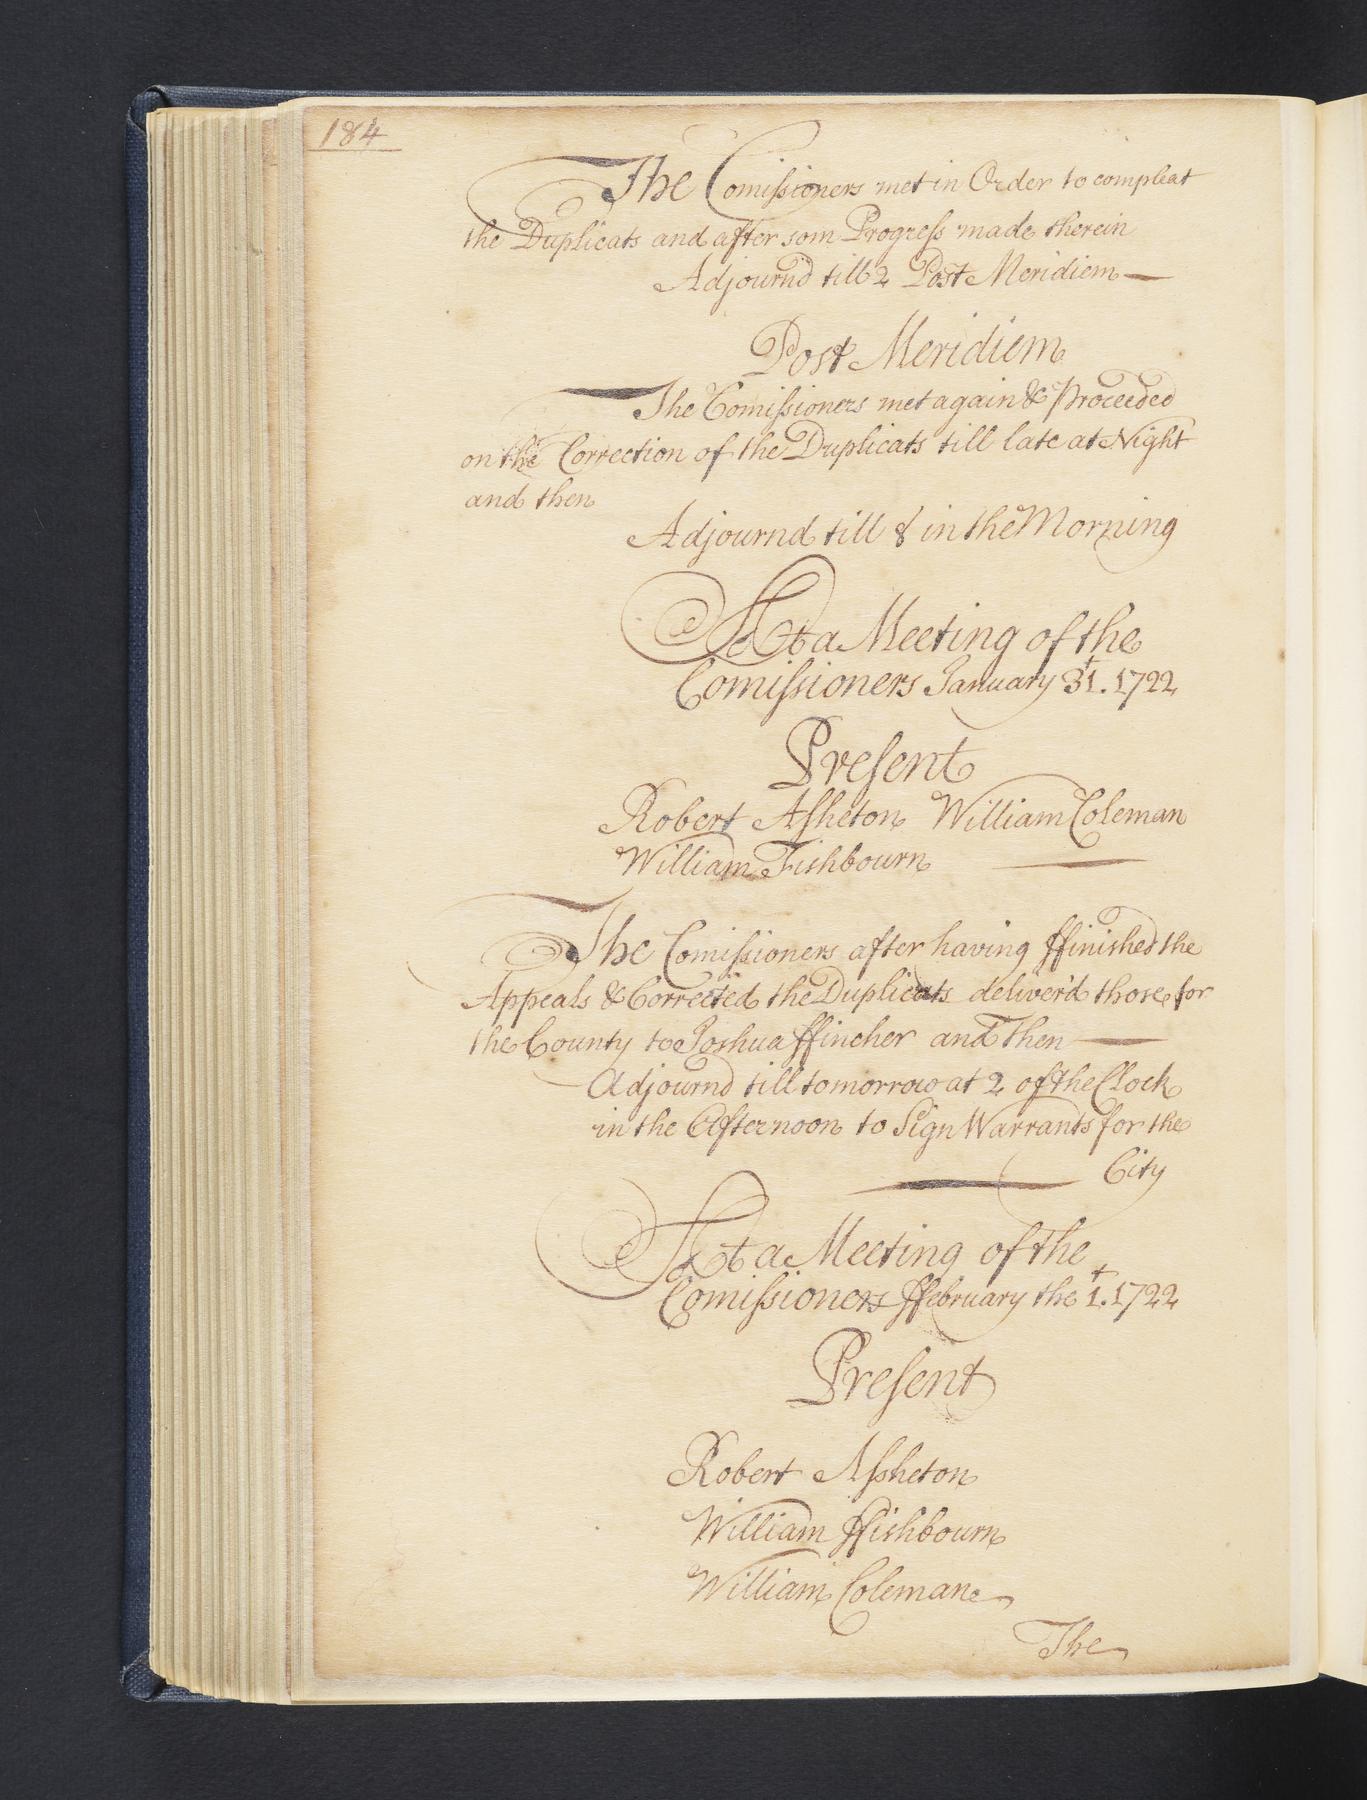 184
The Comissioners met in Order to compleat
the Duplicats and after som Progress made therein
Adjournd till 2 Post Meridiem
Post Meridiem
The Comissioners met again & Proceeded
on the Correction of the Duplicats till late at Night
and then
Adjournd till 8 in the Morning
At a Meeting of the
Comissioners January 31t. 1722
Present
Robert Assheton William Coleman
William Fishbourn
The Comissioners after having ffinished the
Appeals & Corrected the Duplicats deliver'd those for
the County to Joshua ffincher and Then
Adjournd till tomorrow at 2 of the Clock
in the Afternoon to Sign Warrants for the
City
At a Meeting of the
Comissioners ffebruary the 1t. 1722
Present
Robert Assheton
William ffishbourn
William Coleman
The